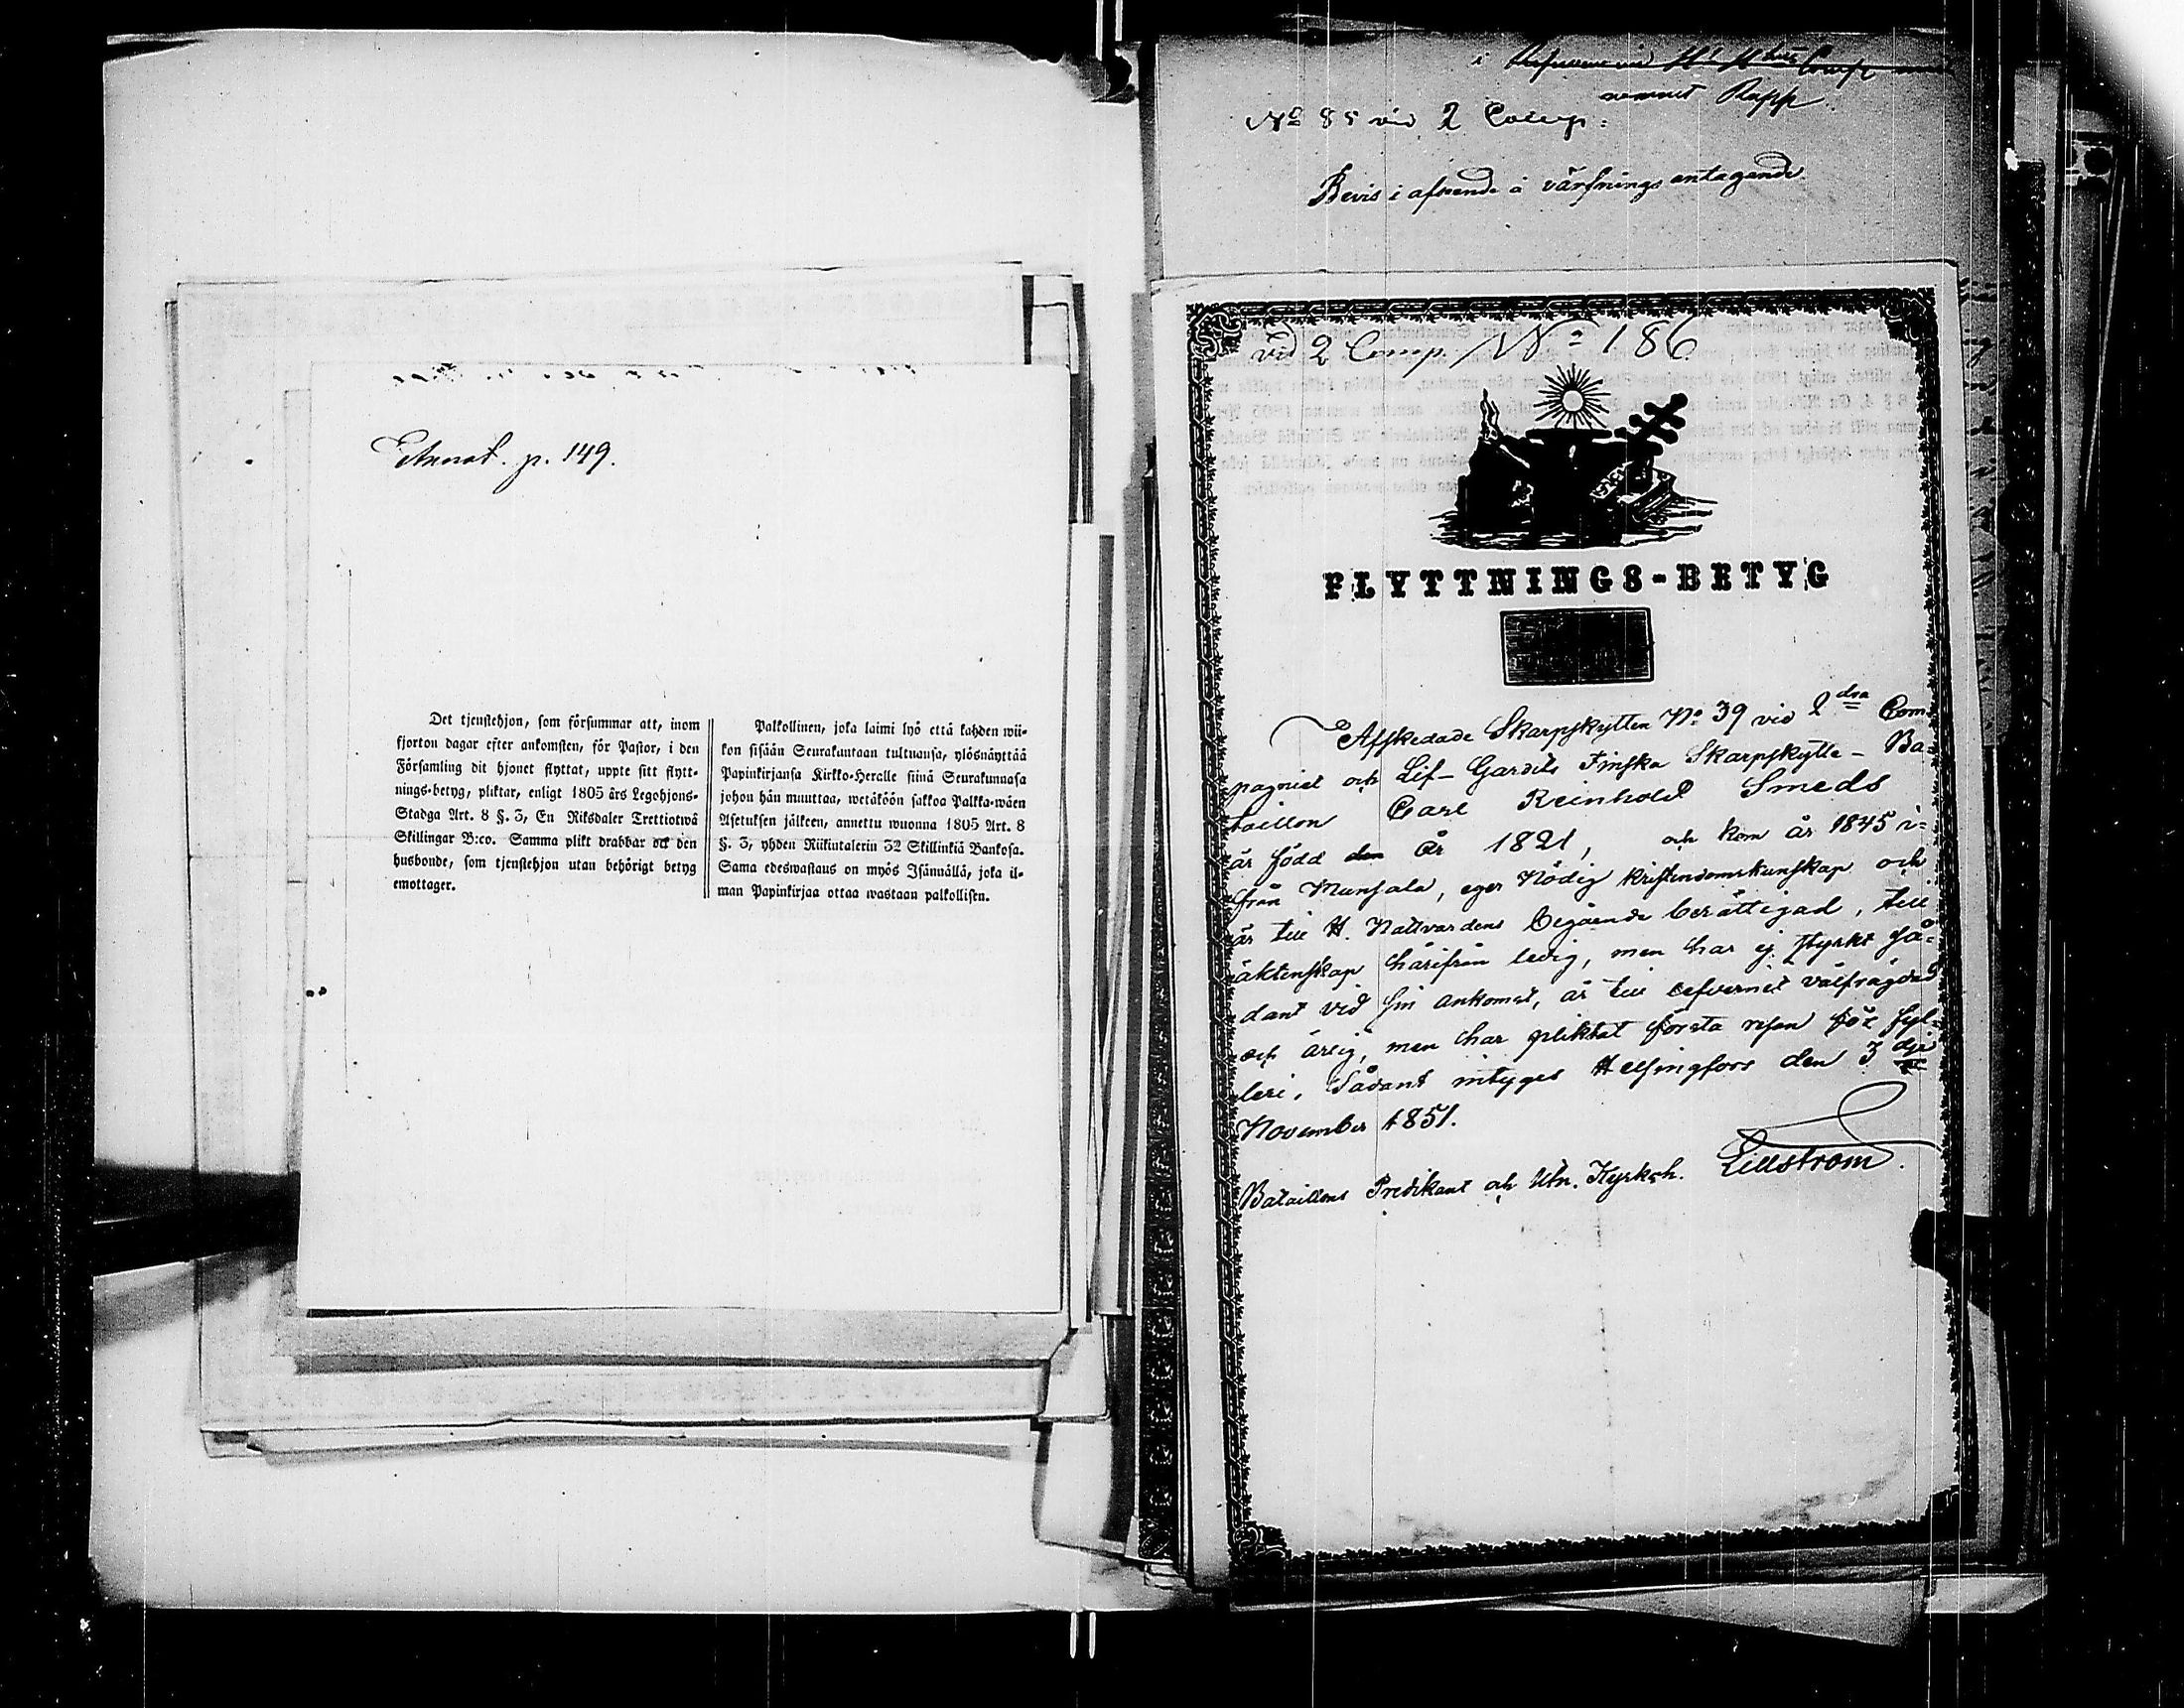 Annot. p. 149.
Det tjenstehjon, som försummar att, inom
fjorton dagar efter ankomsten, för Pastor, i den
Församling dit hjonet flyttat, uppte sitt flytt-
nings-betyg, pliktar, enligt 1805 års Legohjons-
Stadga Art. 8 §. 3, En Riksdaler Trettiotwå
Skillingar B:co. Samma plikt drabbar ock den
husbonde, som tjenstehjon utan behörigt betyg
emottager.
Palkollinen, joka laimi lyö että kahden wii-
kon sisään Seurakuntaan tultuansa, ylösnäyttää
Papinkirjansa Kirkko-Heralle siinä Seurakunnasa
johon hän muuttaa, wetäköön sakkoa Palkka-wäen
Asetuksen jälkeen, annettu wuonna 1805 Art. 8
§. 3, yhden Riikintalerin 32 Skillinkiä Bankosa.
Sama edeswastaus on myös Isännällä, joka il-
man Papinkirjaa ottaa wastaan palkollisen.
namnet Rapp
No 85 vid 2 Comp:
Bevis i afseende å värfnings antagande
vid 2 Comp. No 186
FLYTTNINGS-BETYG
Afskedade Skarpskytten No 39 vid 2dra Com-
pagniet och Lif-Gardets Finska Skarpskytte-Ba-
taillon Carl Reinhold Smeds
är född den år 1821, och kom år 1845 i-
från Munsala, eger Nödig kristendomskunskap och
är till H. Nattvardens begående berättigad, till
äktenskap härifrån ledig, men har ej styrkt så-
dant vid sin ankomst, är till lefvernet välfrägdad
och ärlig, men har pliktat första resan för fyl-
leri, Sådant intyges Helsingfors den 3dje
November 1851.
Bataillons Predikant och Utn. Kyrkoh. Lillström.